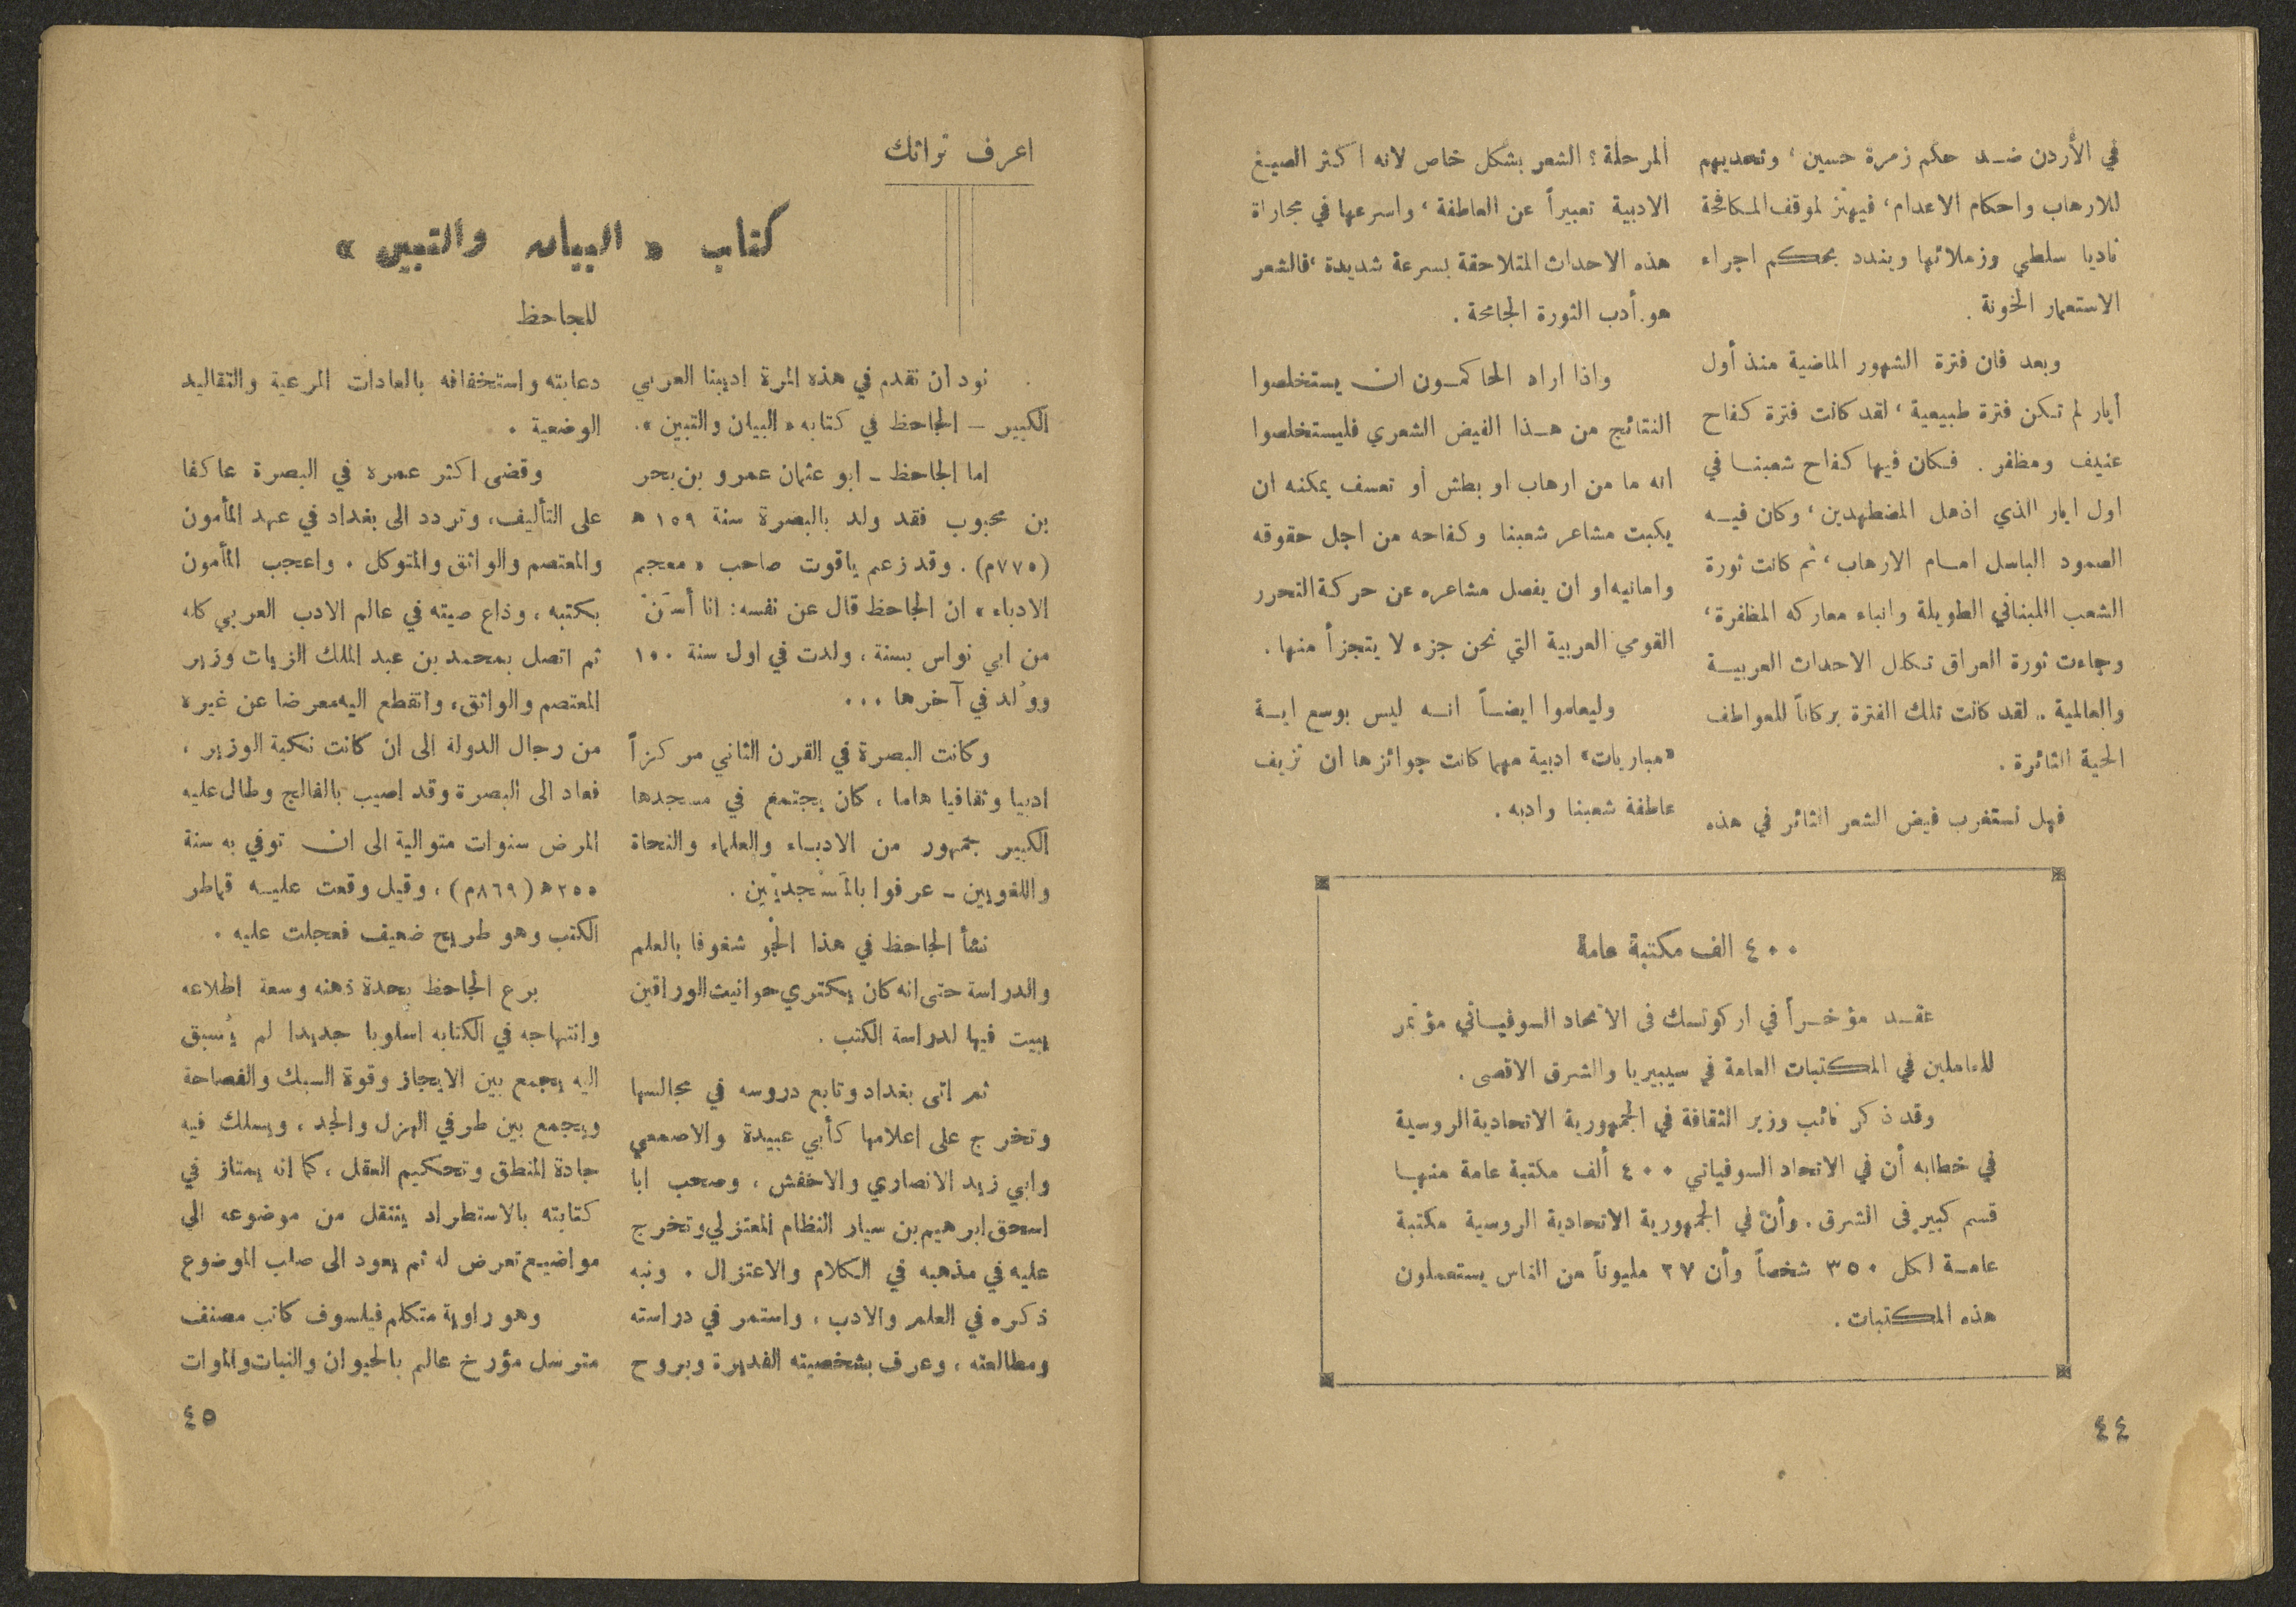 في الأردن ضد حكم زمرة حسين، وتحديهم
للارهاب واحكام الاعدام، فيهتز لموقف المكافحة
ناديا سلطي وزملائها ويندد بحكم اجراء
الاستعمار الخونة.
وبعد فان فترة الشهور الماضية منذ أول
أيار لم تكن فترة طبيعية، لقد كانت فترة كفاح
عنيف ومظفر. فكان فيها كفاح شعبنا في
اول ايار الذي اذهل المضطهدين، وكان فيه
الصمود الباسل امام الارهاب، ثم كانت ثورة
الشعب اللبناني الطويلة وانباء معاركه المظفرة،
وجاءت ثورة العراق تكلل الاحداث العربية
والعالمية.. لقد كانت تلك الفترة بركاناً للعواطف
الحية الثائرة.
فهل نستغرب فيض الشعر الثائر في هذه
المرحلة؟ الشعر بشكل خاص لانه اكثر الصيغ
الادبية تعبيراً عن العاطفة، واسرعها في مجاراة
هذه الاحداث المتلاحقة بسرعة شديدة، فالشعر
هو أدب الثورة الجامحة.
واذا اراد الحاكمون ان يستخلصوا
النتائج من هذا الفيض الشعري فليستخلصوا
انه ما من ارهاب او بطش أو تعسف يمكنه ان
يكبت مشاعر شعبنا وكفاحه من اجل حقوقه
وامانيه او ان يفصل مشاعره عن حركة التحرر
القومي العربية التي نحن جزء لا يتجزأ منها.
وليعلموا ايضاً انه ليس بوسع اية
«مباريات» ادبية مهما كانت جوائزها ان تزيف
عاطفة شعبنا وادبه.
٤٠٠ الف مكتبة عامة
عقد مؤخراً في اركوتسك في الاتحاد السوفياتي مؤتمر
للعاملين في المكتبات العامة في سيبيريا والشرق الاقصى.
وقد ذكر نائب وزير الثقافة في الجمهورية الاتحادية الروسية
في خطابه أن في الاتحاد السوفياتي ٤٠٠ ألف مكتبة عامة منها
قسم كبير في الشرق. وأن في الجمهورية الاتحادية الروسية مكتبة
عامة لكل ٣٥٠ شخصاً وأن ٢٧ مليوناً من الناس يستعملون
هذه المكتبات.
٤٤
اعرف تراثك
كتاب «البيان والتبيين»
للجاحظ
نود أن نقدم في هذه المرة اديبنا العربي
الكبير - الجاحظ في كتابه «البيان والتبين».
اما الجاحظ - ابو عثمان عمرو بن بحر
بن محبوب فقد ولد بالبصرة سنة ١٥٩ ه
(٧٧٥م). وقد زعم ياقوت صاحب «معجم
الادباء» ان الجاحظ قال عن نفسه: انا أسَنّ
من ابي نواس بسنة، ولدت في اول سنة ١٥٠
ووُلد في آخرها...
وكانت البصرة في القرن الثاني مركزاً
ادبيا وثقافيا هاما، كان يجتمع في مسجدها
الكبير جمهور من الادباء والعلماء والنحاة
واللغويين - عرفوا بالمَسْجديّين.
نشأ الجاحظ في هذا الجو شغوفا بالعلم
والدراسة حتى انه كان يكتري حوانيت الوراقين
يبيت فيها لدراسة الكتب.
ثم اتى بغداد وتابع دروسه في مجالسها
وتخرج على اعلامها كأبي عبيدة والاصمعي
وابي زيد الانصاري والاخفش، وصحب ابا
اسحق ابرهيم بن سيار النظام المعتزلي وتخرج
عليه في مذهبه في الكلام والاعتزال. ونبه
ذكره في العلم والادب، واستمر في دراسته
ومطالعته، وعرف بشخصيته الفديرة وبروح
دعابته واستخفافه بالعادات المرعية والتقاليد
الوضعية.
وقضى اكثر عمره في البصرة عاكفا
على التأليف، وتردد الى بغداد في عهد المأمون
والمعتصم والواثق والمتوكل. واعجب المأمون
بكتبه، وذاع صيته في عالم الادب العربي كله
ثم اتصل بمحمد بن عبد الملك الزيات وزير
المعتصم والواثق، وانقطع اليه معرضا عن غيره
من رجال الدولة الى ان كانت نكبة الوزير،
فعاد الى البصرة وقد اصيب بالفالج وطال عليه
المرض سنوات متوالية الى ان توفي به سنة
٢٥٥ ه (٨٦٩م)، وقيل وقعت عليه قماطر
الكتب وهو طريح ضعيف فعجلت عليه.
برع الجاحظ بحدة ذهنه وسعة اطلاعه
وانتهاجه في الكتابه اسلوبا جديدا لم يُسبق
اليه يجمع بين الايجاز وقوة السبك والفصاحة
ويجمع بين طرفي الهزل والجد، ويسلك فيه
جادة المنطق وتحكيم العقل، كما انه يمتاز في
كتابته بالاستطراد ينتقل من موضوعه الى
مواضيع تعرض له ثم يعود الى صلب الموضوع
وهو راوية متكلم فيلسوف كاتب مصنف
مترسل مؤرخ عالم بالحيوان والنبات والموات
٤٥